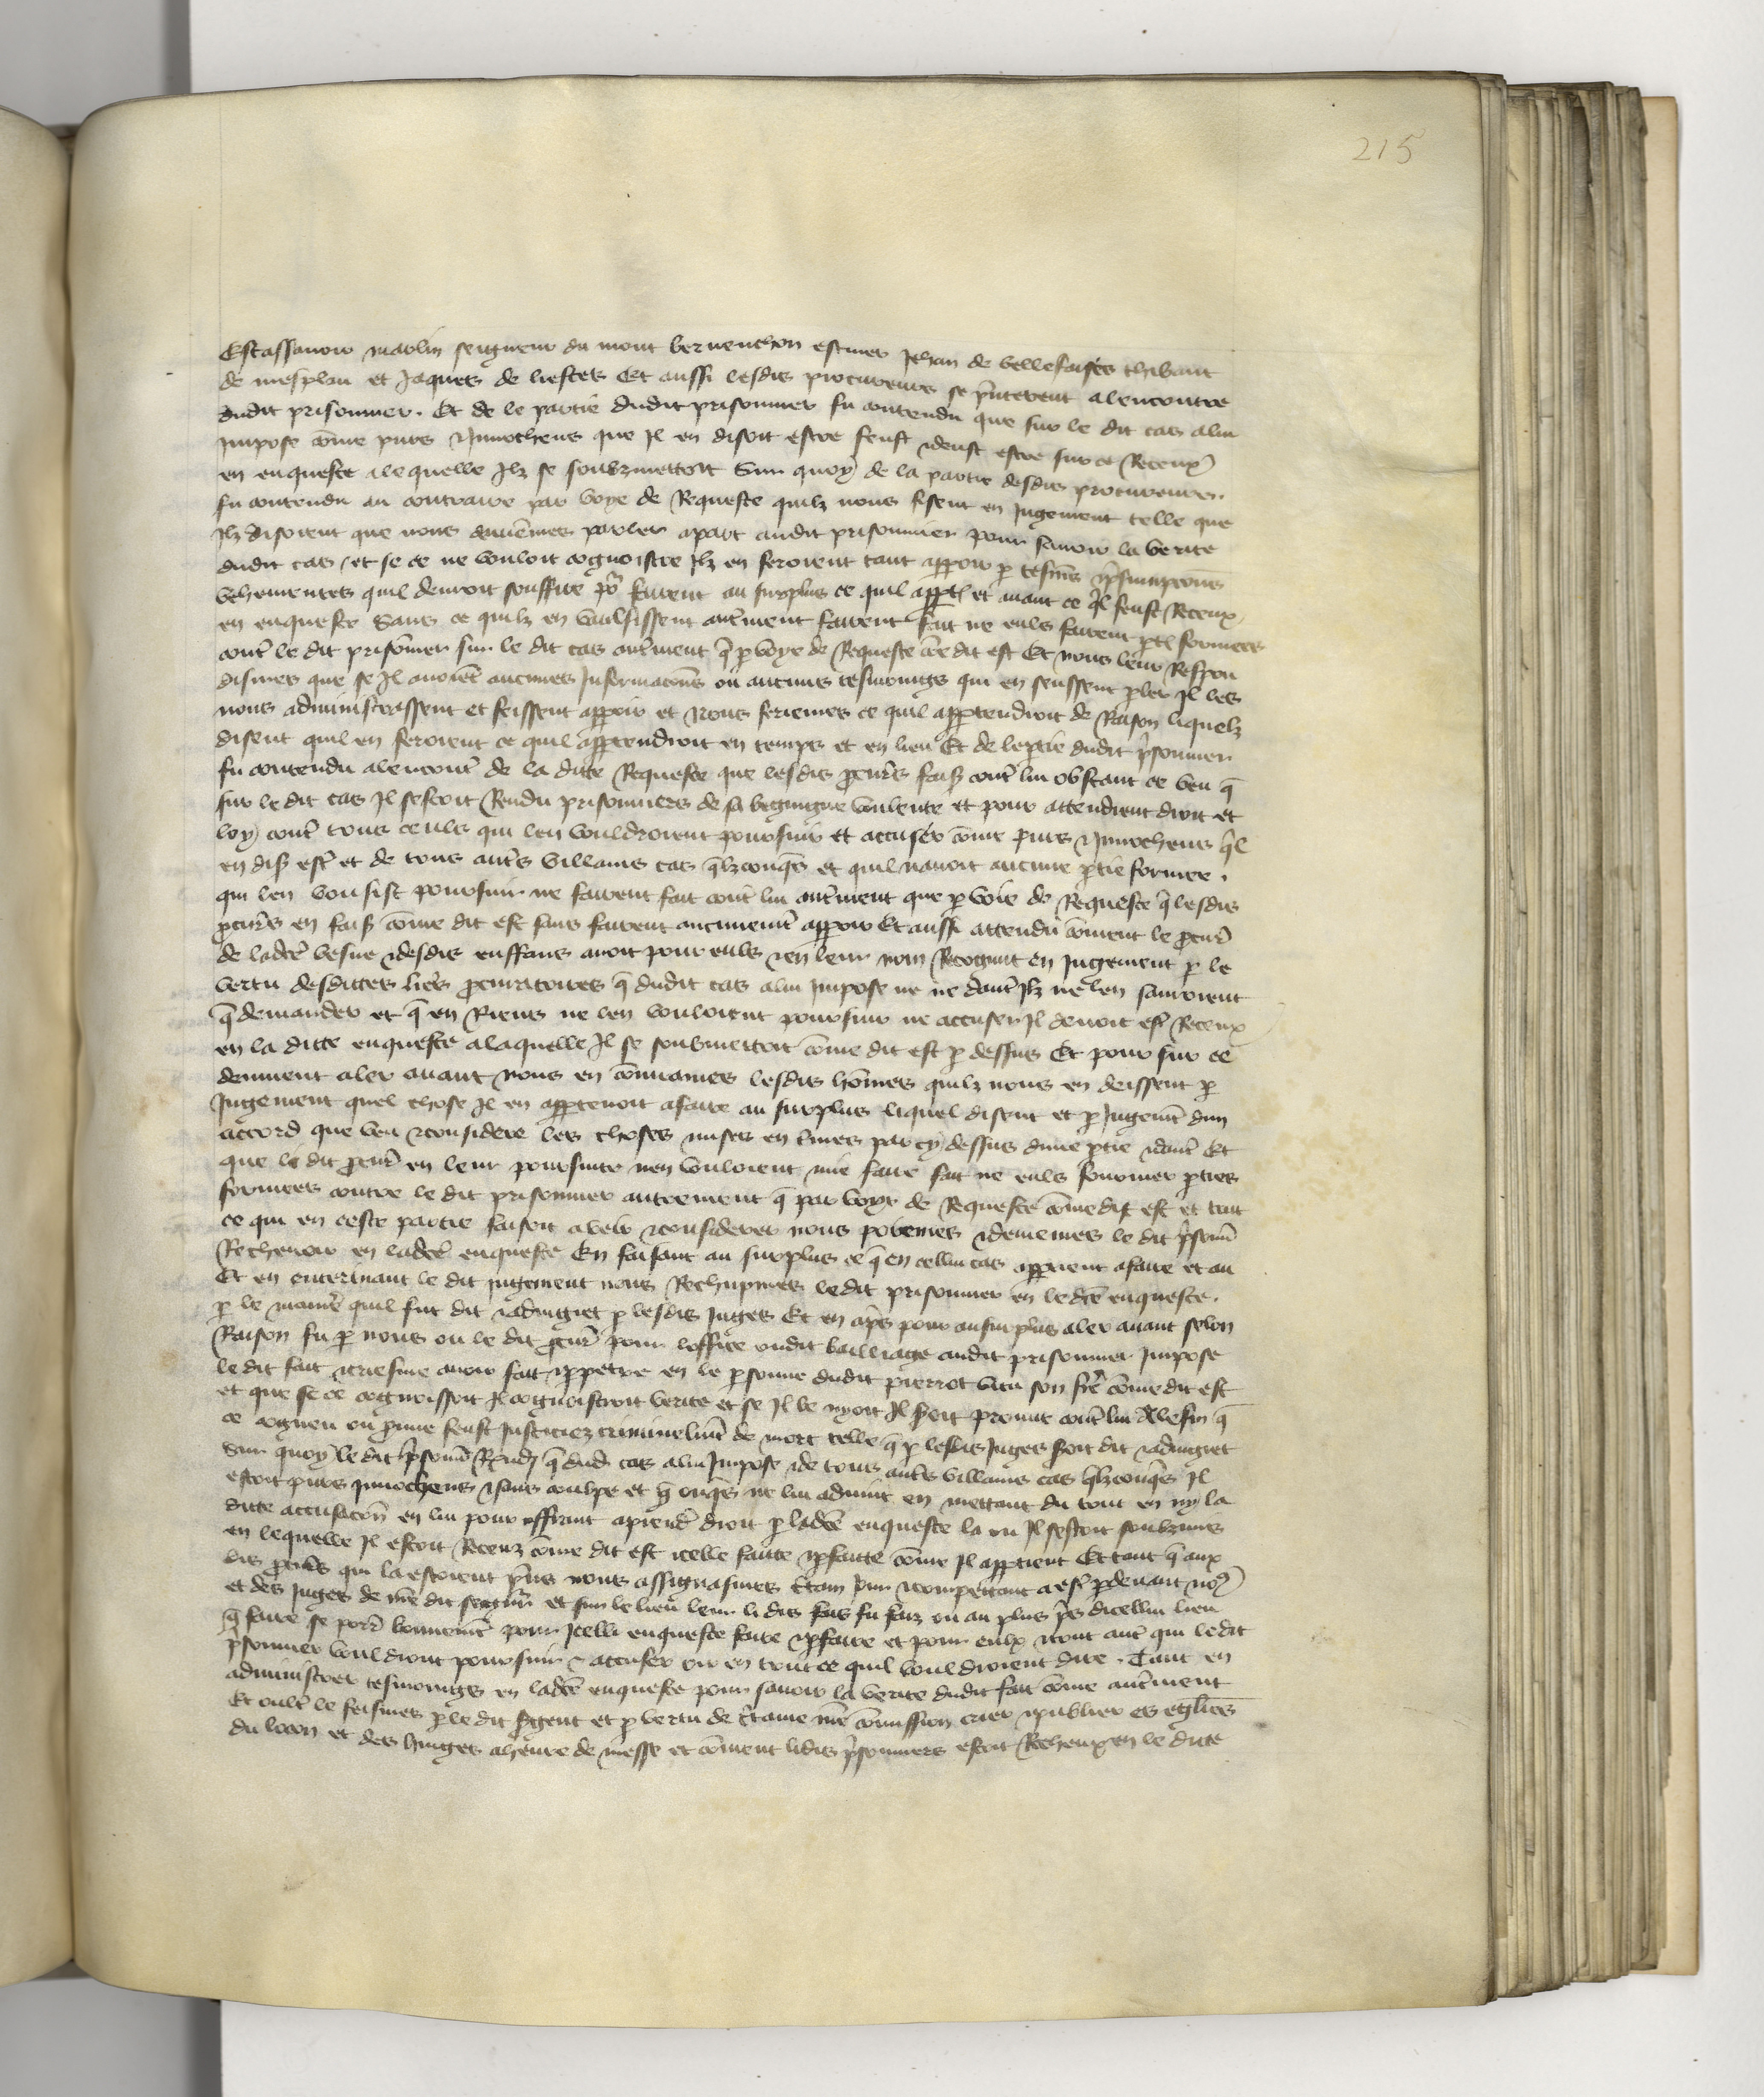 215
Estassavoir marlin seigneur du mont bernenchon estmer Jehan de bellesaises thibaut
de mesplau et Jaques de liestes Et aussi lesdis procureurs se pn̄terent alencontre
dudit prisonnier. Et de le partie dudit prisonnier fu contendu que sur le dit cas alui
Impose cōme purs & Innochens que Il en disoit estre feust & deust estre sur ce Receux
en enqueste alequelle Ilz se soubzmettoit Sur quoy de la partie desdis procureurs
fu contendu au contraire par voye de Requeste quilz nous fisent en Jugement telle que
Ilz disoient que nous parler apart audit prisonnier pour savoir la verite
dudit cas / et se ce ne vouloit cognoistre Ilz en feroient tant apparoir p̱ tesm̄s & p̄sumpcōns
vehementes quil devroit souffire faire au surplus ce quil app̄t et avant ce q̄l feust Receux
en enqueste Sans ce quilz en vaulsissent autr̄ment faire fait ne euls faire p̱t formees
contr̄ le dit prisōnier sur le dit cas autr̄ment q̄ p̱ voye de Requeste cōe dit est Et nous leur Respon
disines que se Il avoiēt aucunes Informacōns ou aucuns tesmoings qui en seussent p̱ler Il les
nous administrassent et feissent apparoir et Nous feriemes ce quil app̱tendroit de Raison liquelz
disent quil en feroient ce quil app̱tendroit en temps et en lieu Et de lep̱tie dudit p̄sonnier
fu contendu alencontr̄ de la ditte Requeste que lesdis p̱cur̄s fais̄ contr̄ lui obstant ce veu q̄
sur le dit cas Il sestoit Rendu prisonniers de sa begnigne voulente et pour attendre droit et
loy contr̄ tous ceuls qui len vouldroient poursuir et accuser cōme purs & Innochens q̄l
en dis̄ estr̄ et de tous autr̄s villains cas q̄lzconq̄s et quil navoit aucune p̱tie formee.
qui len vousist poursuir ne faire fait contr̄ lui autr̄ment que p̱ voie de Requeste q̄ lesdis
p̱cur̄s en fais̄ cōme dit est sans faire aucunemēt apparoir Et aussi attendu cōment le p̱cur̄
de ladc̄e vesve & desdis enffans avoit pour euls & en leur nom Recognut en Jugement p̱ le
vertu desdittes lr̄es procuratoires q̄ dudit cas alui Impose ne Ilz ne len savroient
q̄ demander et q̄ en Riens ne len vouloient poursuir ne accuser Il devoit estr̄ Receux
en la ditte enqueste alaquelle Il se soubmettoit cōme dit est p̱ dessus Et pour sur ce
deuuent aler avant nous en lesdis hōmes quilz nous en deissent p̱
Jugement quel chose Il en app̱tenoit afaire au surplus liquel disent et p̱ Jugemēt dun
accord que veu & considere les choses mises en t̄mes par cy dessus dune p̱tie & dautr̄ Et
que le dit p̱cur̄ en leur poursuite nen vouloient mie faire fait ne euls fourmer p̱ties
formees contre le dit prisonnier autrement q̄ par voye de Requeste cōme dit est et tout
ce qui en ceste partie faisoit aveir & considerer nous poiemes & deviemes le dit p̄sonn̄
Rechevoir en ladc̄e enqueste En faisant au surplus ce q̄ en cellui cas app̱tient afaire et au
Et en enterinant le dit jugement nous Rechupmes ledit prisonnier en le dc̄e enqueste.
p̱ le manier̄ quil fut dit & adjugiet p̱ lesdis Juges Et en ap̄s pour ausurplus aler avant selon
Raison fu p̱ nous ou le dit p̱cur̄ pour loffice dudit bailliage audit prisonnier Impose
le dit fait & criesme avoir fait & p̱petre en le p̱sonne dudit pierrot son fr̄e cōme dit est
et que se ce cognoissoit Il cognoistroit verite et se Il le nyoit Il seroit prouve contr̄ lui Alefin q̄
ce cogneu ou p̱uve feust Justiciez criminelmēt de mort telle q̄ p̱ lesdis Juges seroit dit & adjugiet
Sur quoy le dit p̄sonn̄ Rendi q̄ dud̄ cas alui Impose & de tous autr̄s villains cas q̄lzconq̄s Il
estoit purs Innochens & sans coulpe et q̄ onq̄s ne lui advint en mettant du tout en ny la
ditte accusacōn en lui pour offrant aprendr̄ droit p̱ ladc̄e enqueste la ou Il sestoit soubzmis
en lequelle Il estoit Receuz cōme dit est icelle faitte & p̱faitte cōme Il app̱tient Et tant q̄ aux
dis p̱cur̄s qui la estoient p̄ns nous assignasmes c̄tain Jour & competent a estr̄ p̱devant no9
et des Juges de mō dit seign̄r et sur le lieu leur li dis fais fu faiz ou au plus p̄s dicellui lieu
q̄ faire se porr̄ bonnemēt pour Icelli enqueste faire & p̱faire et pour eulx & tout autr̄ qui ledit
p̄sonnier vouldront poursuir & accuser oir en tout ce quil vouldroient dire. Tant en
administrer tesmoings en ladc̄e enqueste pour savoir la verite dudit fait cōme autr̄ment
Et oultr̄ le feismes p̱ le dit s̄gent et p̱ vertu de c̄taine nr̄e cōmission crier & publier es eglises
du locon et des hinges aheure de messe et cōment lidis p̄sonniers estoit Recheux en le ditte